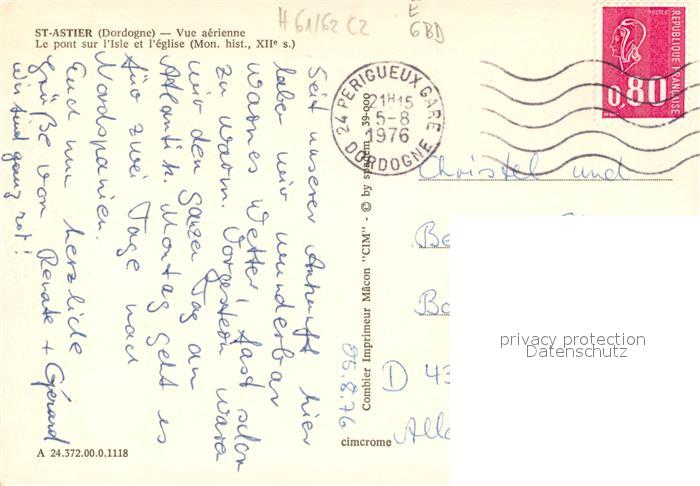 H 61/62 C2
E
6BD
ST-ASTIER (Dordogne) — Vue aérienne
Le pont sur l'Isle et l'église (Mon. hist., XIIe s.)
Seit unserer Ankunft hier
haben wir wunderbar
warmes Wetter, fast schon
zu warm. Vorgestern waren
wir den ganzen Tag am
Atlantik. Montag geht es
für zwei Tage nach
Nordspanien.
Euch nun herzliche
Grüße von Renate + Gérard
Wir sind ganz rot!
05.8.76
A 24.372.00.0.1118
Combier Imprimeur Mâcon "CIM" - © by spadem 39-000
cimcrome
24 PERIGUEUX GARE
21H15
5-8
1976
DORDOGNE
POSTES
0,80
REPUBLIQUE FRANÇAISE
Christel und
Be
Bo
D 43
Alle
privacy protection
Datenschutz